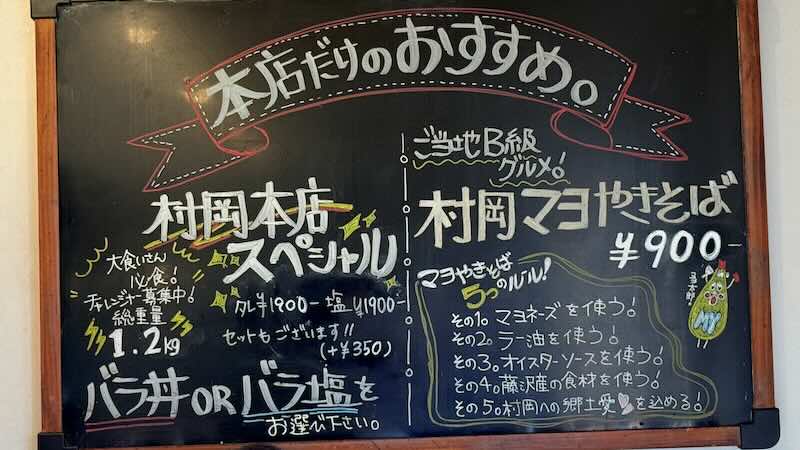 本店だけのおすすめ。
村岡本店
スペシャル
大食いさん
必食!
チャレンジャー募集中!
総重量
1.2kg
タレ¥1900- 塩¥1900-
セットもございます!!
(+¥350)
バラ丼ORバラ塩を
お選び下さい。
ご当地B級
グルメ!
村岡マヨやきそば
¥900-
マヨやきそば
5つのルール!
その1。マヨネーズを使う!
その2。ラー油を使う!
その3。オイスターソースを使う!
その4。藤沢産の食材を使う!
その5。村岡への郷土愛を込める!
MY